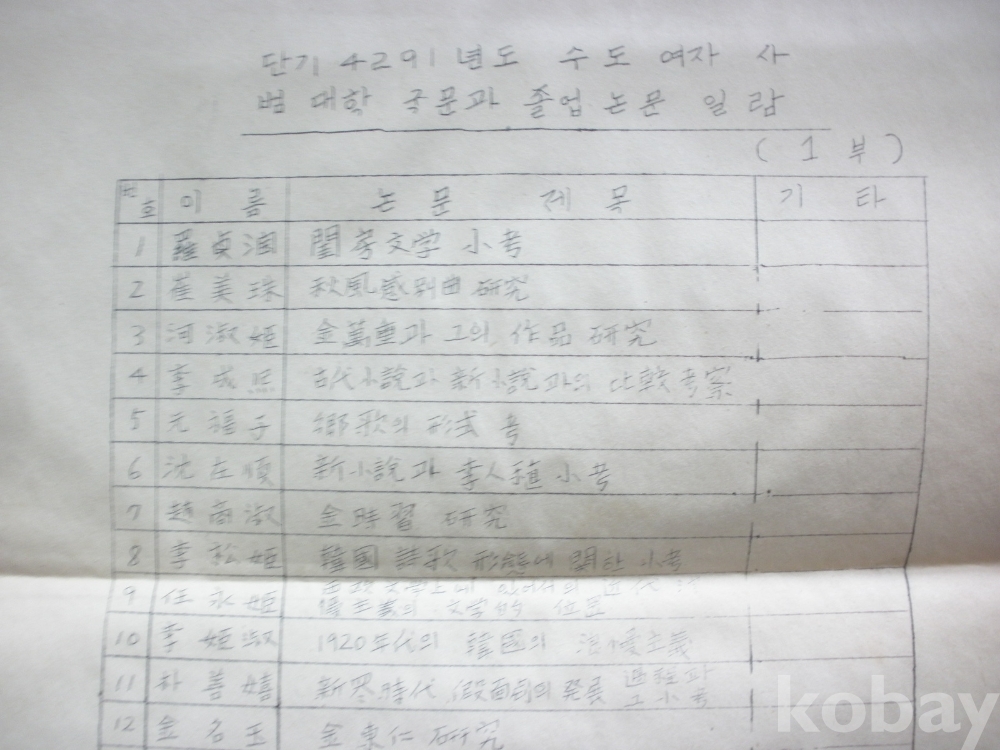 단기 4291년도 수도 여자 사
범 대학 국문과 졸업 논문 일람
(1부)
번호 이름 논문 제목 기타
1 羅貞潤 閨房文学 小考
2 崔美珠 秋風感別曲 研究
3 河淑姬 金萬重과 그의 作品 研究
4 李成 古代小說과 新小說과의 比較考察
5 元福子 鄕歌의 形式 考
6 沈在順 新小說과 李人稙 小考
7 趙南淑 金時習 研究
8 李松姬 韓國 詩歌 形態에 關한 小考
9 任永姬 文学的 位置
10 李姬淑 1920年代의 韓國의 浪漫主義
11 朴善嬉 新羅時代 假面劇의 発展 過程과 그 小考
12 金名玉 金東仁 研究
kobay